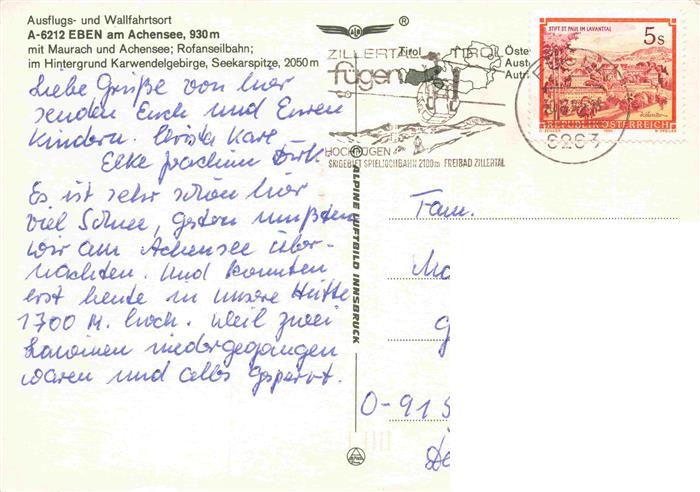 Ausflugs- und Wallfahrtsort
A-6212 EBEN am Achensee, 930 m
mit Maurach und Achensee; Rofanseilbahn;
im Hintergrund Karwendelgebirge, Seekarspitze, 2050 m
®
Tirol
Öste
Aust
Autr
ZILLERTAL TIROL
fügen
HOCHFÜGEN
SKIGEBIET SPIELJOCHBAHN 2100m FREIBAD ZILLERTAL
STIFT ST. PAUL IM LAVANTTAL
5s
REPUBLIK ÖSTERREICH
6263
Liebe Grüße von hier
senden Euch und Euren
Kindern. Christa Karl
Elke Joachim Dirk.
Es ist sehr schön hier
viel Schnee, gestern mußten
wir am Achensee über-
nachten. Und konnten
erst heute in unsere Hütte
1700 M. hoch. Weil zwei
Lawinen niedergegangen
waren und alles gesperrt.
ALPINE LUFTBILD INNSBRUCK
Fam.
O-915